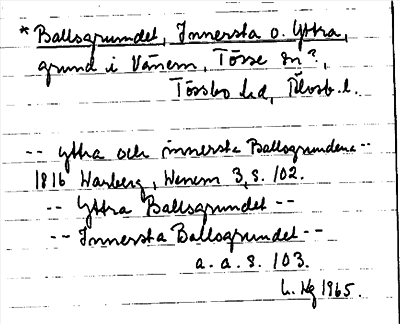 * Ballsgrundet, Innersta o. Yttra,
grund i Vänern, Tösse sn?,
Tössbo hd, Älvsb. l.
-- yttra och innersta Ballsgrundena --
1816 Warberg, Wenern 3, s. 102.
-- Yttra Ballsgrundet --
-- Innersta Ballsgrundet --
a. a. s. 103.
1965.